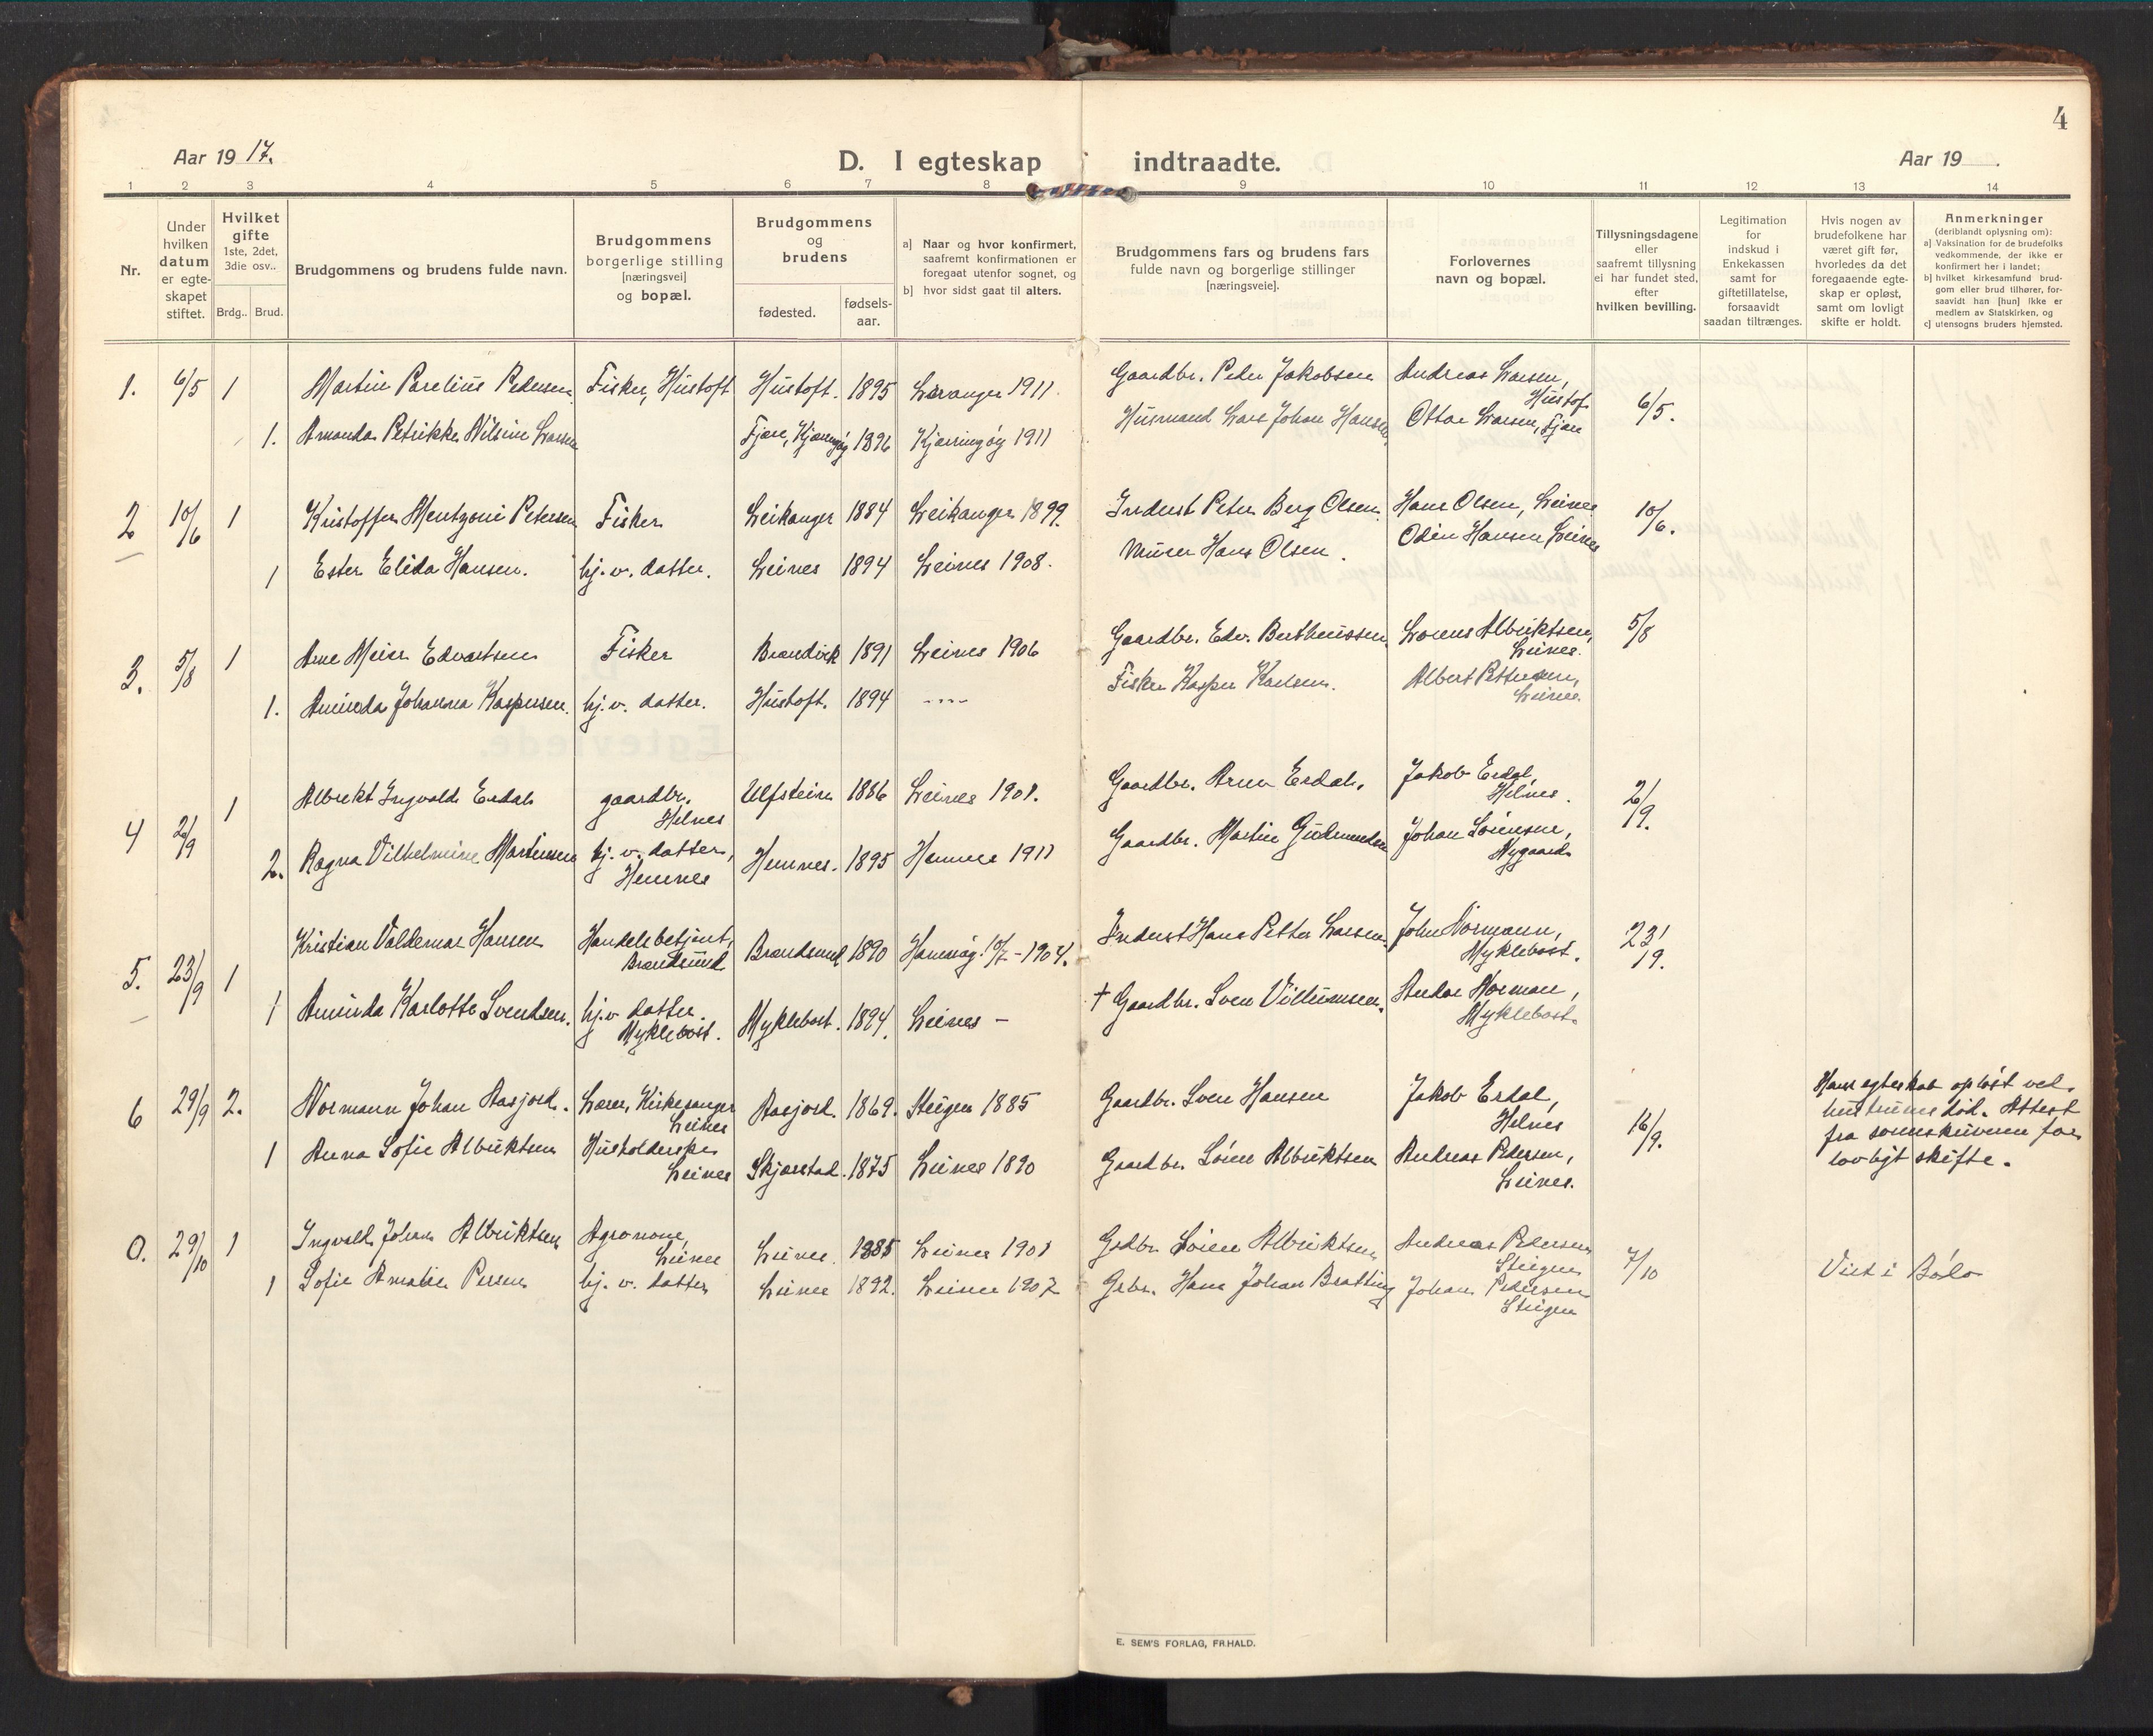 4
Aar 19 17.
D. I egteskap indtraadte.
Aar 19 .
1 2 3 4 5 6 7 8 9 10 11 12 13 14
Nr.
Under hvilken datum er egte-skapet stiftet.
Hvilket gifte 1ste, 2det, 3die osv..
Brdg.. Brud.
Brudgommens og brudens fulde navn.
Brudgommens borgerlige stilling [næringsvei] og bopæl.
Brudgommens og brudens
fødested.
fødsels-aar.
a] Naar og hvor konfirmert, saafremt konfirmationen er foregaat utenfor sognet, og
b] hvor sidst gaat til alters.
Brudgommens fars og brudens fars fulde navn og borgerlige stillinger [næringsveie].
Forlovernes navn og bopæl.
Tillysningsdagene eller saafremt tillysning ei har fundet sted, efter hvilken bevilling.
Legitimation for indskud i Enkekassen samt for giftetillatelse, forsaavidt saadan tiltrænges.
Hvis nogen av brudefolkene har været gift før, hvorledes da det foregaaende egte-skap er opløst, samt om lovligt skifte er holdt.
Anmerkninger (deriblandt oplysning om):
a] Vaksination for de brudefolks vedkommende, der ikke er konfirmert her i landet;
b] hvilket kirkesamfund brud-gom eller brud tilhører, for-saavidt han [hun] ikke er medlem av Statskirken, og
c] utensogns bruders hjemsted.
1. 6/5 1 Martin Parelius Pedersen Fisker, Hustoft Hustoft. 1895 Leranger 1911. Gaardbr. Peder Jakobsen Andreas Larsen, Hustof 6/5.
1. Amanda Petrikke Nilsine Larsen Fjære, Kjærringøy 1896 Kjærringøy 1911 Husmand Lars Johan Hansen Ottar Larsen, Fjære
2 10/6 1 Kristoffer Mentzoni Petersen Fisker Leikanger 1884 Leikanger 1899. Inderst Peter Berg Olsen. Hans Olsen, Leines 10/6.
1 Ester Elida Hansen. hj. v. datter. Leines 1894 Leines 1908. Murer Hans Olsen. Odin Hansen Leines
3. 5/8 1 Arne Meier Edvartsen Fisker Brandvik 1891 Leines 1906 Gaardbr. Edv. Bertheussen Lorens Albriktsen, Leines. 5/8
1. Aminda Johanna Kaspersen. hj. v. datter. Hustoft. 1894 ---- Fisker Kasper Karlsen. Albert Pettersen, Leines.
4 2/9 1 Albrekt Ingvald Erdal gaardbr. Helnes Ulfstein 1886 Leines 1901. Gaardbr. Arne Erdal. Jakob Erdal, Helnes. 2/9.
2. Ragna Vilhelmine Martinsen hj. v. datter, Hemnes Hemnes. 1895 Hemnes 1911 Gaardbr. Martin Gudmundsen Johan Sörensen, Nygaard
5. 23/9 1 Kristian Valdemar Hansen Handelsbetjent, Brandsund Brandsund 1890 1904. Inderst Hans Petter Larsen. John Normann, Myklebost. 23/9.
1 Aminda Karlotte Svendsen. hj. v. datter. Myklebost. Myklebost. 1894. Leines – † Gaardbr. Sven Villumsen. Andor Norman, Myklebost.
6 29/9 2. Normann Johan Aasjord. Lærer, Kirkesanger Leines Aasjord. 1869. Steigen 1885 Gaardbr. Sven Hansen Jakob Erdal, Helnes 16/9. Hans egteskab opløst ved hustruens död. Attest fra sorenskriveren for lovligt skifte.
1 Anna Sofie Albriktsen Husholderske Leines Skjærstad. 1875 Leines 1890 Gaardbr. Sören Albriktsen Andreas Pedersen, Leines.
0. 29/10 1 Ingvald Johan Albriktsen Agronom, Leines Leines. 1885 Leines 1901 Gsdbr. Sören Albriktsen Andreas Pedersen Steigen 7/10 Viet i Bodö
1 Sofie Amalie Persen hj. v. datter Leines 1892. Leines 1907 Gsbr. Hans Johan Bratting Johan Pedersen Steigen
E. SEM'S FORLAG, FR.HALD.